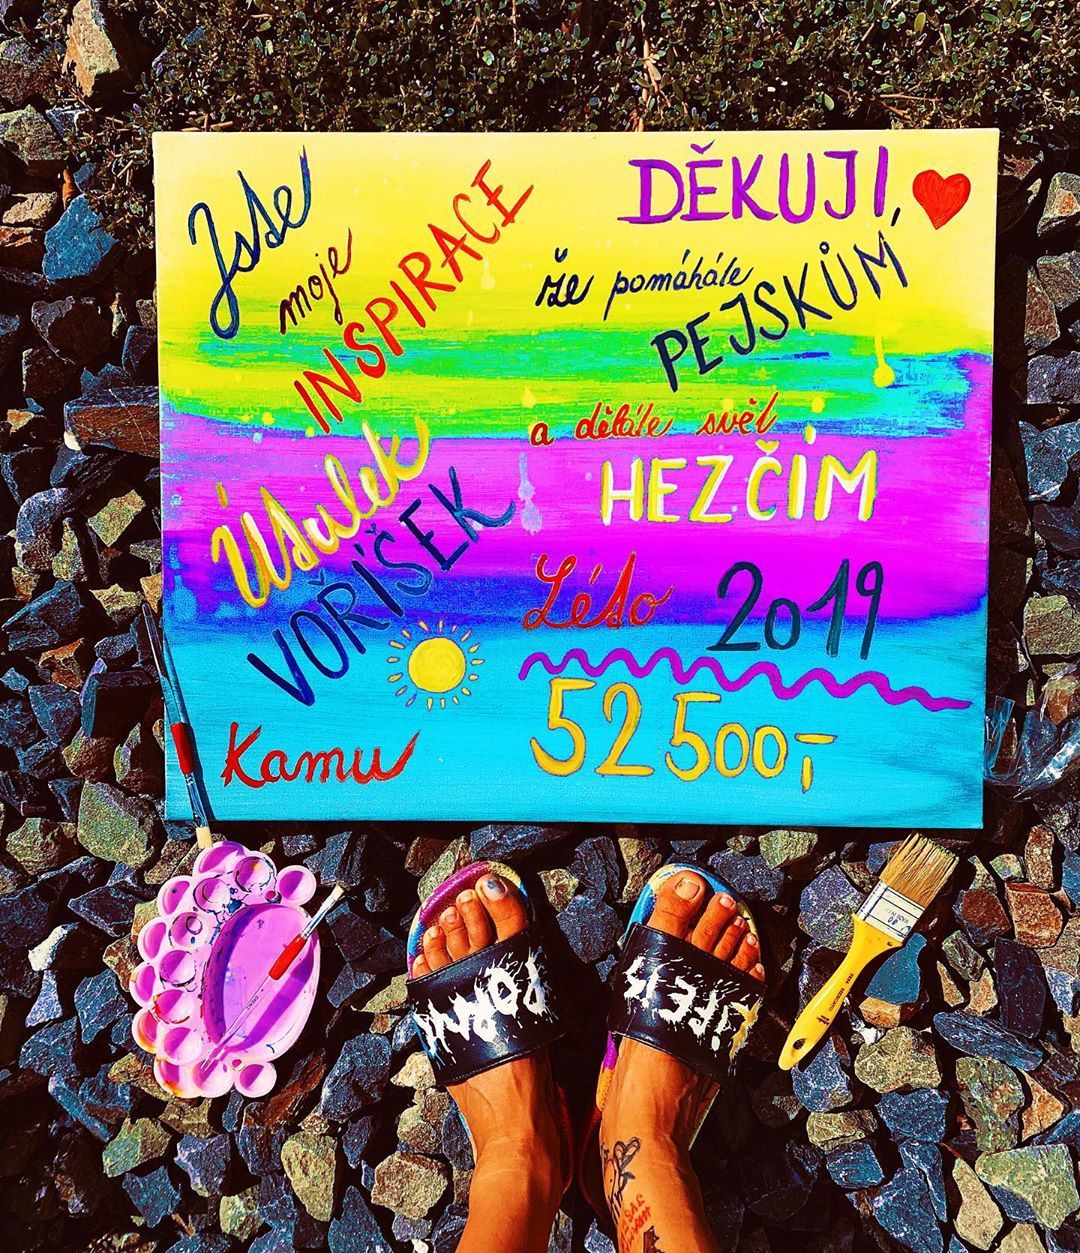 Jste
moje
INSPIRACE
Útulek
VOŘÍŠEK
Kamu
DĚKUJI,
že pomáháte
PEJSKŮM
a děláte svět
HEZČÍM
Léto 2019
52 500,-
LIFE IS